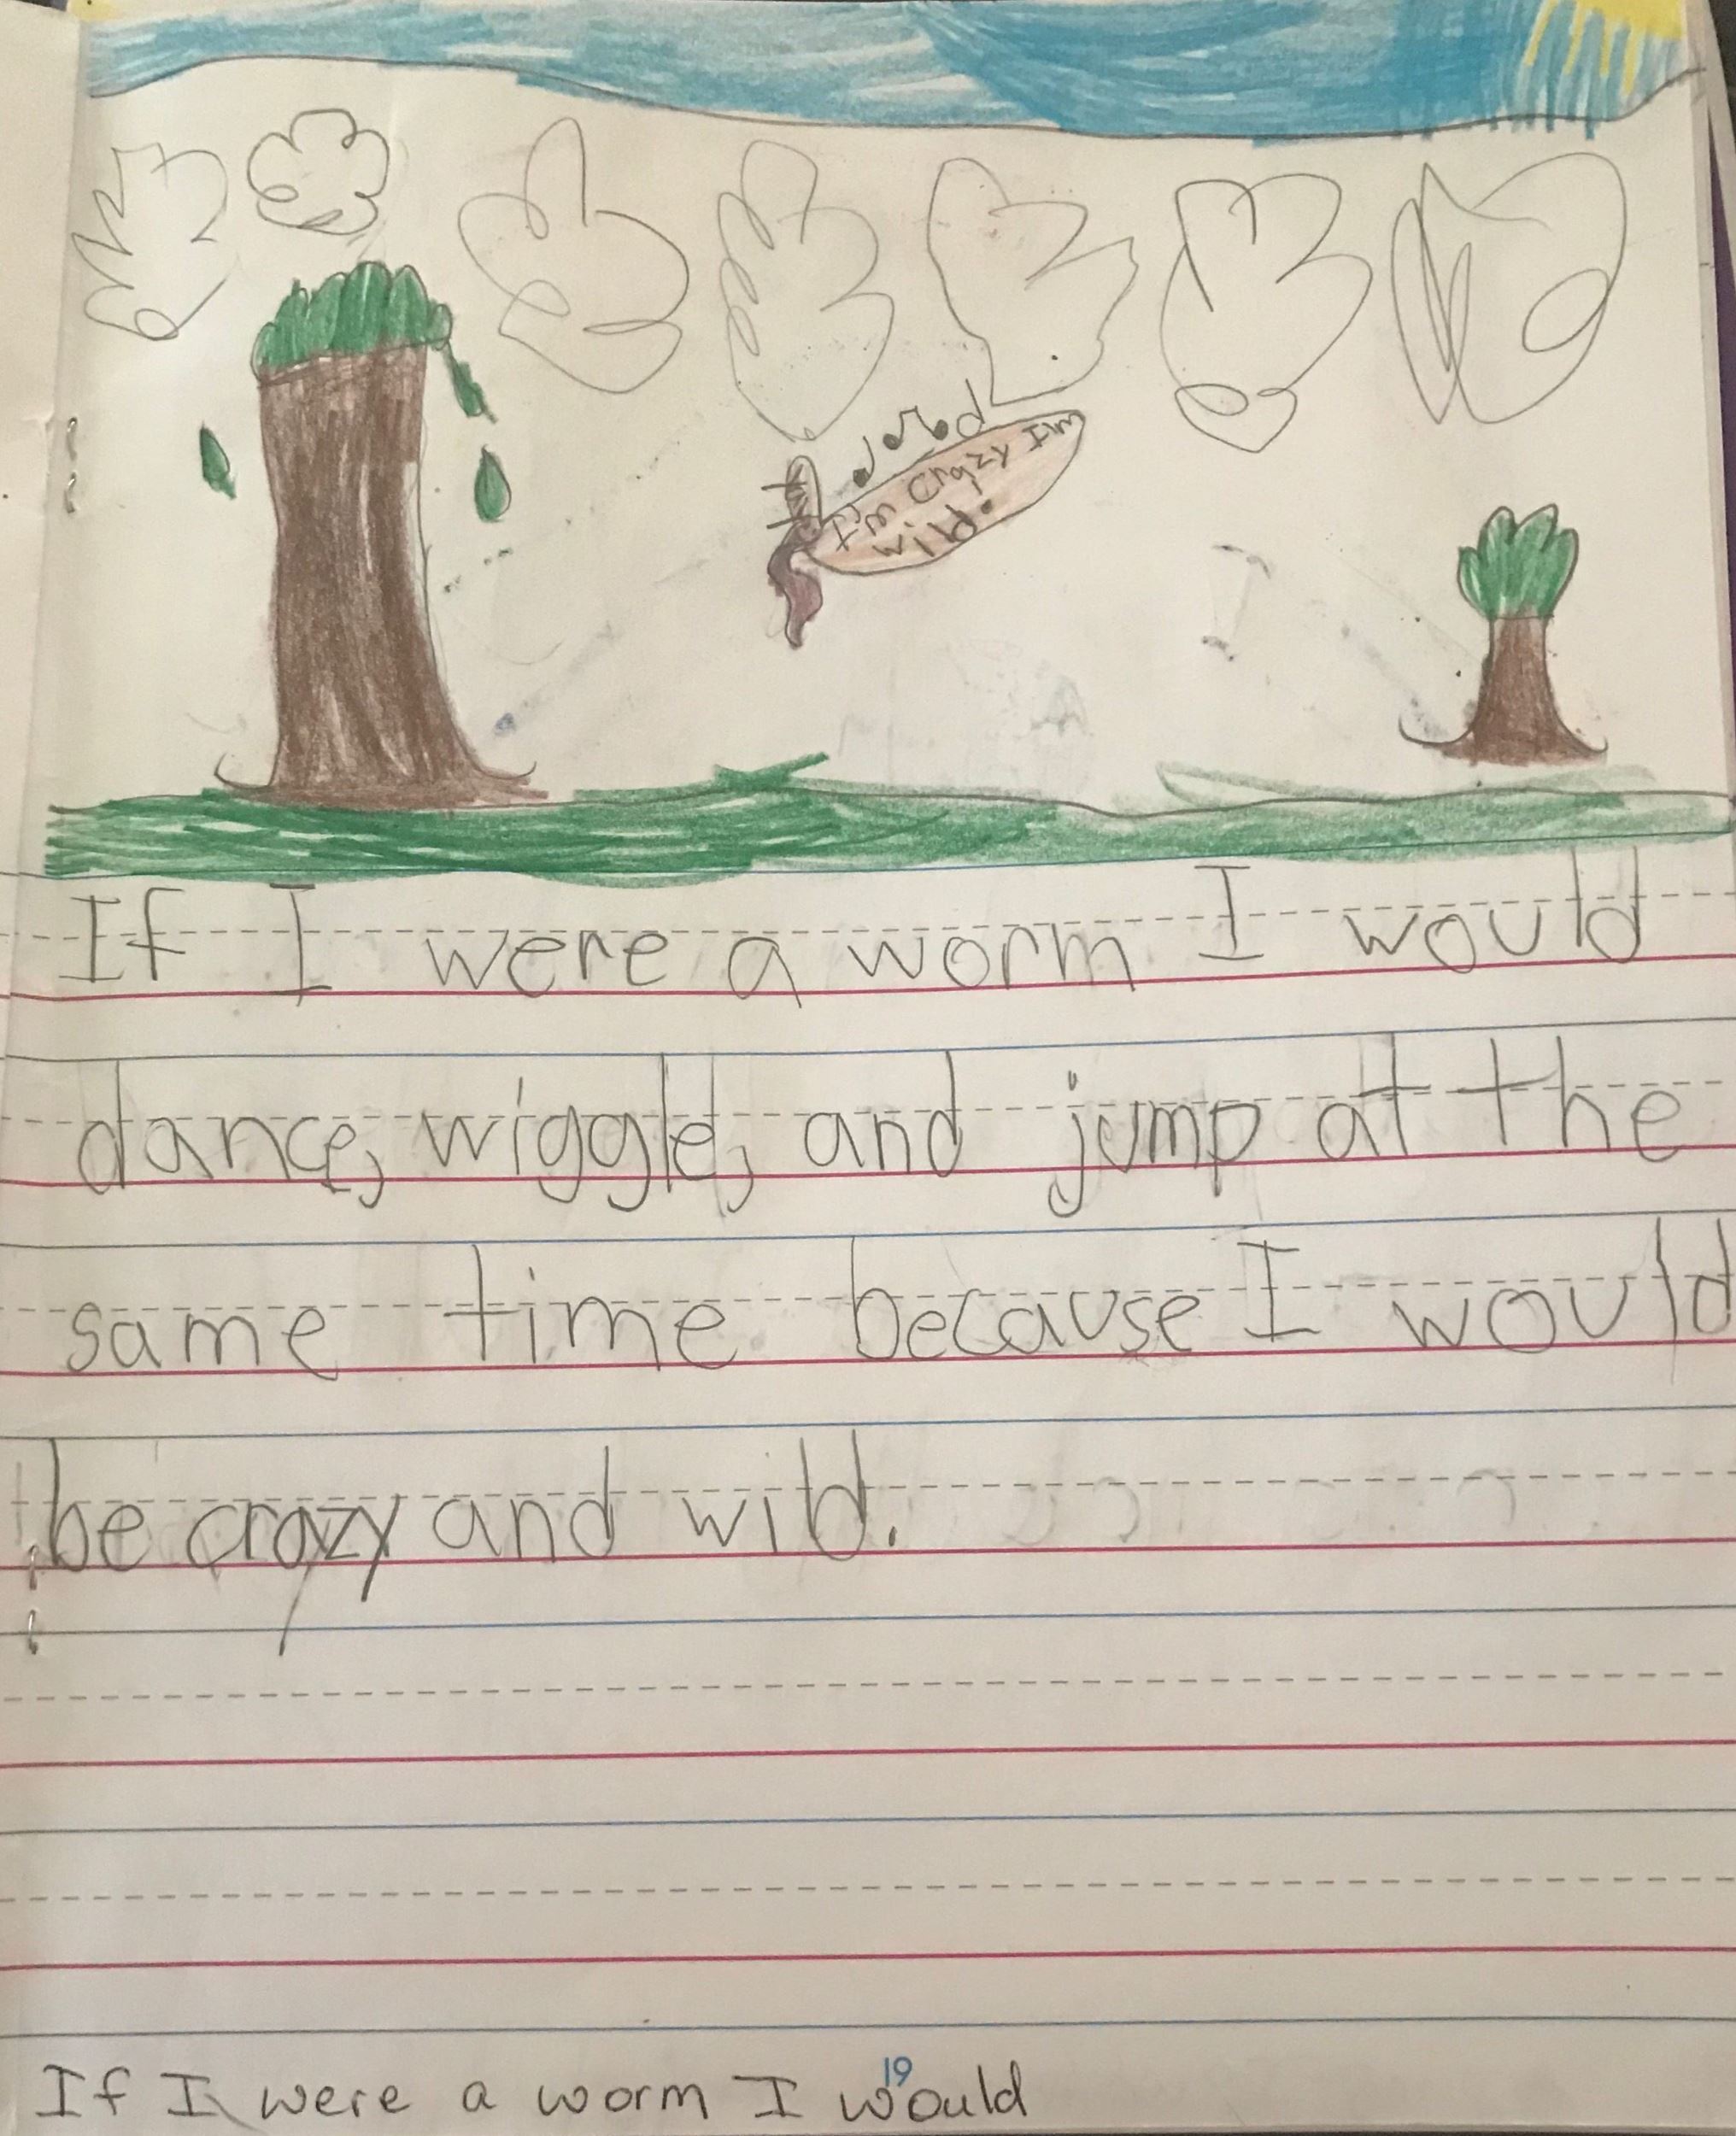 I'm crazy I'm
wild.
If I were a worm I would
dance, wiggle, and jump at the
same time because I would
be crazy and wild.
19
If I were a worm I would